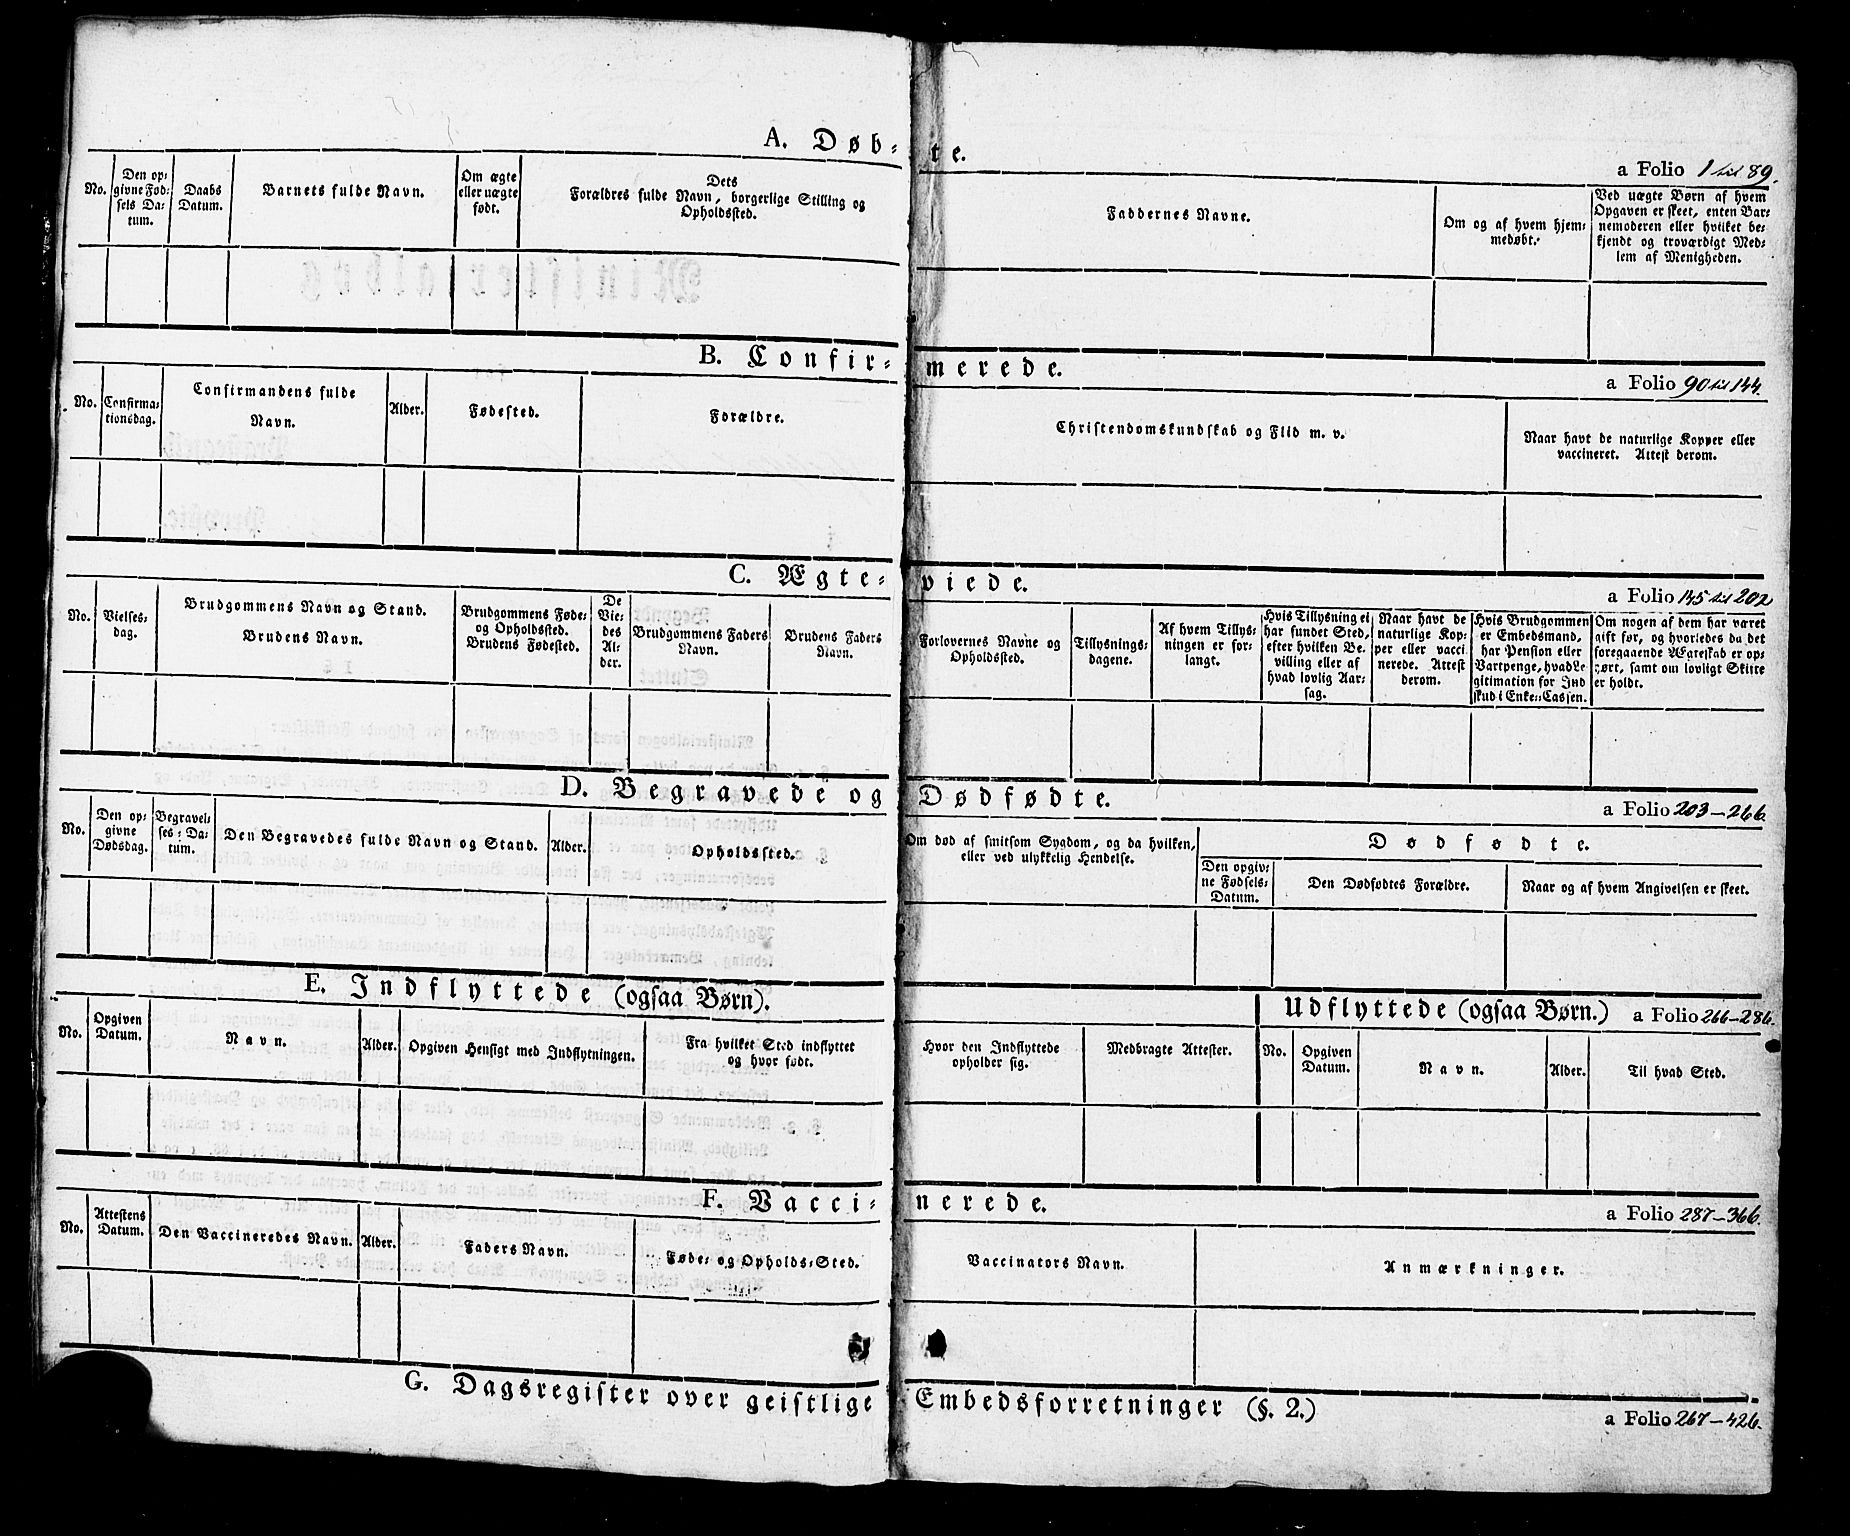 A. Døb-te.
a Folio 1 til 89.
No.
Den op-
givne Fød-
sels Da-
tum.
Daabs
Datum.
Barnets fulde Navn.
Om ægte
eller uægte
født.
Dets
Forældres fulde Navn, borgerlige Stilling og
Opholdssted.
Faddernes Navne.
Om og af hvem hjem-
medøbt.
Ved uægte Børn af hvem
Opgaven er skeet, enten Bar-
nemoderen eller hvilket be-
kjendt og troværdigt Med-
lem af Menigheden.
B. Confir-merede.
a Folio 90 til 144.
No.
Confirma-
tionsdag.
Confirmandens fulde
Navn.
Alder.
Fødested.
Forældre.
Christendomskundskab og Flid m. v.
Naar havt de naturlige Kopper eller
vaccineret. Attest derom.
C. Ægte-viede.
a Folio 145 til 202
No.
Vielses-
dag.
Brudgommens Navn og Stand.
Brudens Navn.
Brudgommens Føde-
og Opholdssted.
Brudens Fødested.
De
Vie-
des
Al-
der.
Brudgommens Faders
Navn.
Brudens Faders
Navn.
Forlovernes Navne og
Opholdssted.
Tillysnings-
dagene.
Af hvem Tillys-
ningen er for-
langt.
Hvis Tillysning ei
har fundet Sted,
efter hvilken Be-
villing eller af
hvad lovlig Aar-
sag.
Naar havt de
naturlige Kop-
per eller vacci
nerede. Attest
derom.
Hvis Brudgommen
er Embedsmand,
har Pension eller
Vartpenge, hvad Le
gitimation for Ind
skud i Enke-Cassen.
Om nogen af dem har været
gift før, og hvorledes da det
foregaaende Ægteskab er op-
hørt, samt om lovligt Skifte
er holdt.
D. Begravede og Dødfødte.
a Folio 203-266.
No.
Den op-
givne
Dødsdag.
Begravel-
ses-Da-
tum.
Den Begravedes fulde Navn og Stand.
Alder.
Opholdssted.
Om død af smitsom Sygdom, og da hvilken,
eller ved ulykkelig Hendelse.
Dødfødte.
Den opgiv-
ne Fødsels-
Datum.
Den Dødfødtes Forældre.
Naar og af hvem Angivelsen er skeet.
E. Indflyttede (ogsaa Børn).
Udflyttede (ogsaa Børn.) a Folio 266-286.
No.
Opgiven
Datum.
Navn.
Alder.
Opgiven Hensigt med Indflytningen.
Fra hvilket Sted indflyttet
og hvor født.
Hvor den Indflyttede
opholder sig.
Medbragte Attester.
No.
Opgiven
Datum.
Navn.
Alder.
Til hvad Sted.
F. Vacci-nerede.
a Folio 287-366.
No.
Attestens
Datum.
Den Vaccineredes Navn.
Alder.
Faders Navn.
Føde- og Opholds-Sted.
Vaccinators Navn.
Anmærkninger.
G. Dagsregister over geistlige Embedsforretninger (§. 2.)
a Folio 267-426.